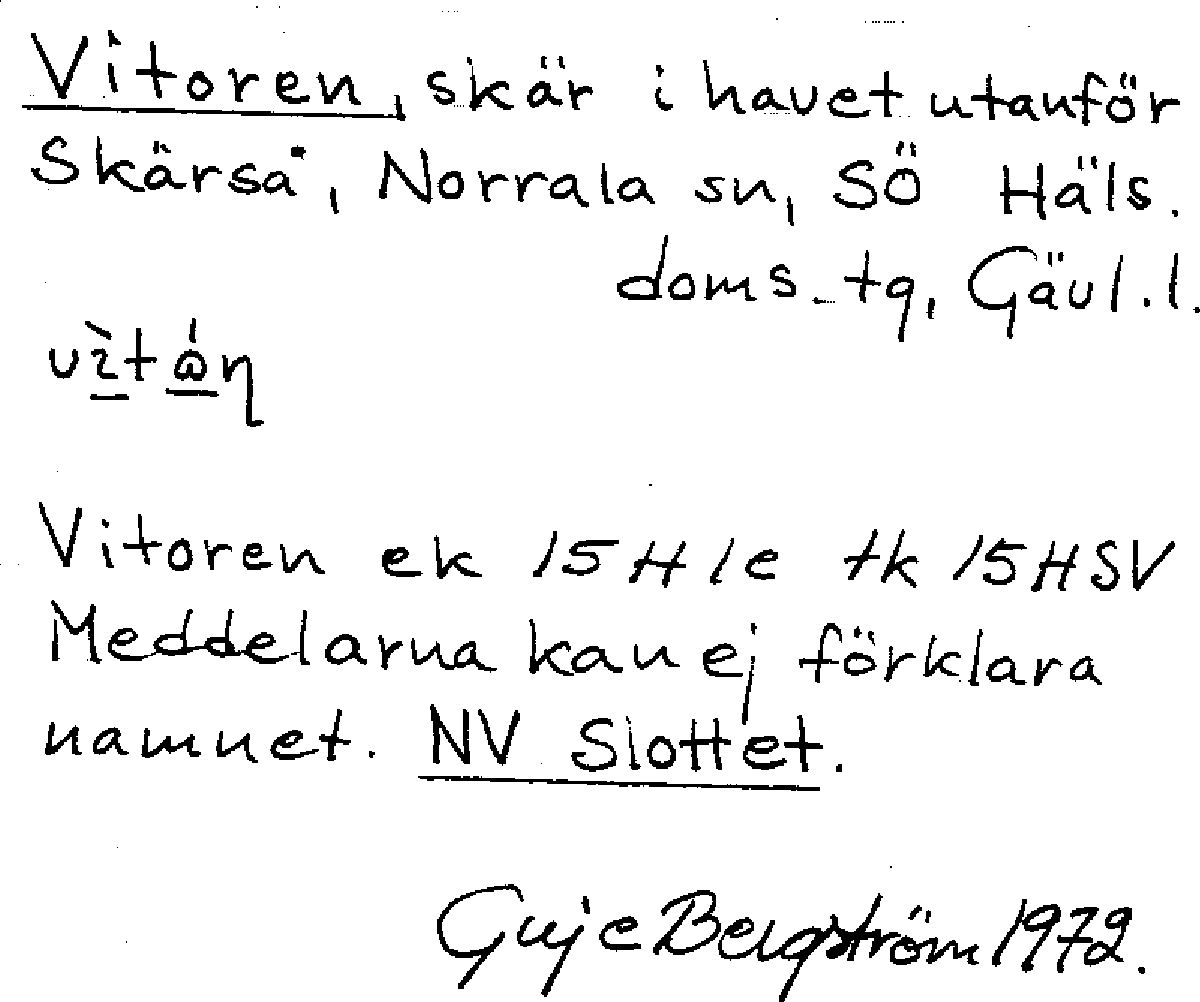 Vitoren, skär i havet utanför
Skärså, Norrala sn, SÖ Häls.
doms. tg, Gävl. l.
Vitoren ek 15 H 1e tk 15 H SV
Meddelarna kan ej förklara
namnet. NV Slottet.
Guje Bergström 1972.